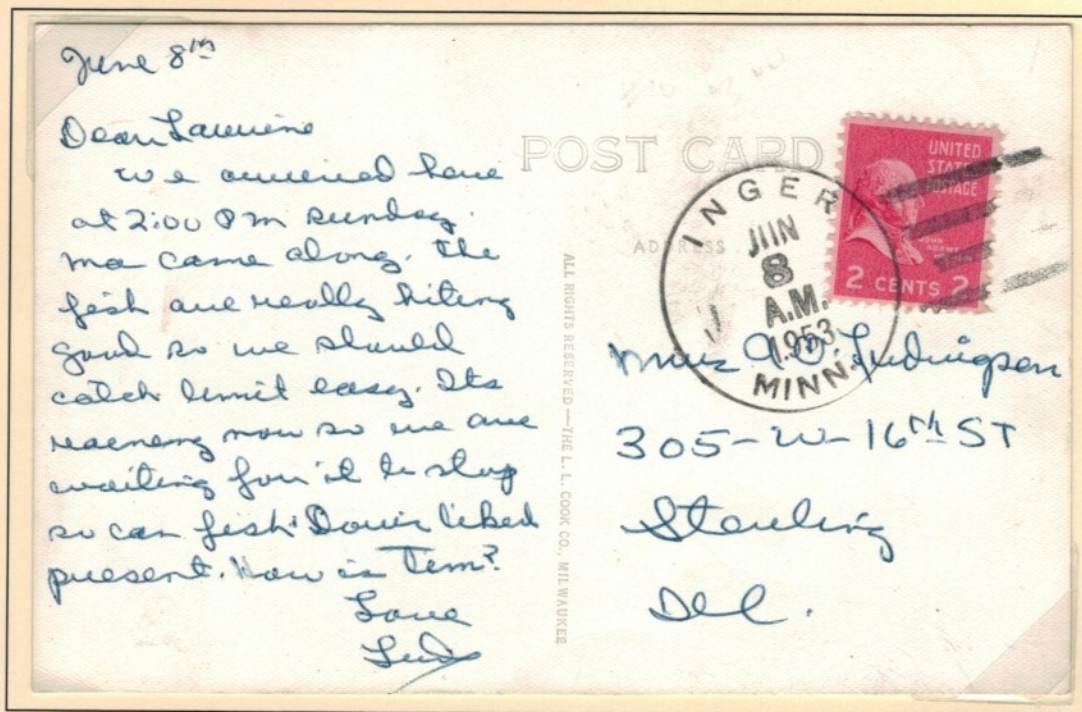 June 8th
Dear Laurine
we arrived here
at 2:00 PM sunday.
ma came along. the
fish are really biting
good so we should
catch limit easy. Its
raening now so we are
waiting for it to stop
so can fish. Doris liked
present. How is Tim?
Love
Lud
POST CARD
ADDRESS
ALL RIGHTS RESERVED—THE L. L. COOK CO., MILWAUKEE
INGER
JUN
8
A.M.
1953
MINN.
UNITED
STATES
POSTAGE
JOHN
ADAMS
2 CENTS 2
Ludvigsen
305-W-16th ST
Sterling
Ill.